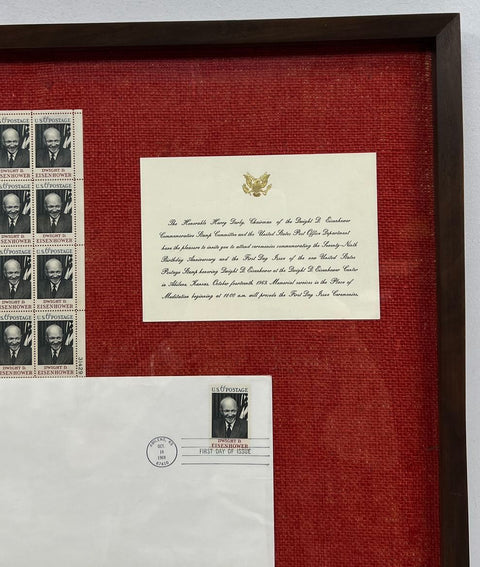 U.S. 6¢ POSTAGE
DWIGHT D.
EISENHOWER
U.S. 6¢ POSTAGE
DWIGHT D.
EISENHOWER
DWIGHT D.
EISENHOWER
DWIGHT D.
EISENHOWER
DWIGHT D.
EISENHOWER
DWIGHT D.
EISENHOWER
DWIGHT D.
EISENHOWER
DWIGHT D.
EISENHOWER
31429
The Honorable Harry Darby, Chairman of the Dwight D. Eisenhower
Commemorative Stamp Committee and the United States Post Office Department
have the pleasure to invite you to attend ceremonies commemorating the Seventy-Ninth
Birthday Anniversary and the First Day Issue of the new United States
Postage Stamp honoring Dwight D. Eisenhower at the Dwight D. Eisenhower Center
in Abilene, Kansas, October fourteenth, 1969. Memorial services in the Place of
Meditation beginning at 10:00 a.m. will precede the First Day Issue Ceremonies.
U.S. 6¢ POSTAGE
DWIGHT D.
EISENHOWER
ABILENE, KS
OCT
14
1969
67410
FIRST DAY OF ISSUE